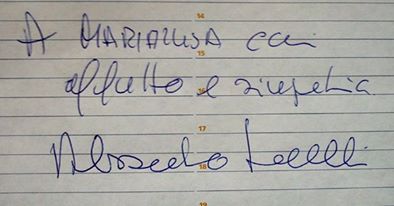 14
A MARIALUISA con
15
affetto e simpatia
16
17
18
19